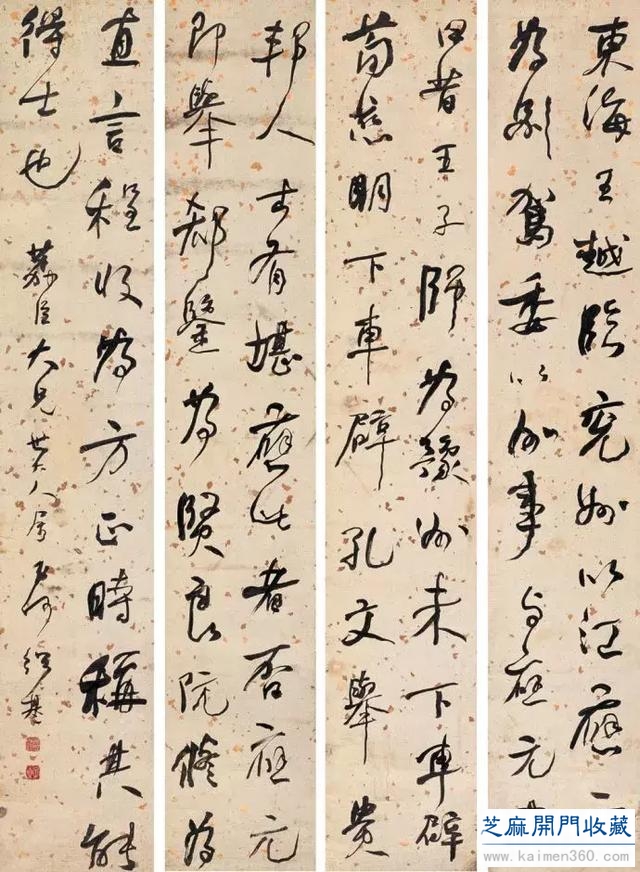 東海王越臨兗州以江應
為別駕委以州事與應元
曰昔王子師為豫州未下車辟
荀慈明下車辟孔文舉貴
邦人士有堪應此者否應元
即舉郗鑒為賢良阮脩為
直言程收為方正時稱其能
得士也 荔臣大兄世大人屬 何紹基
芝麻開門收藏
www.kaimen360.com